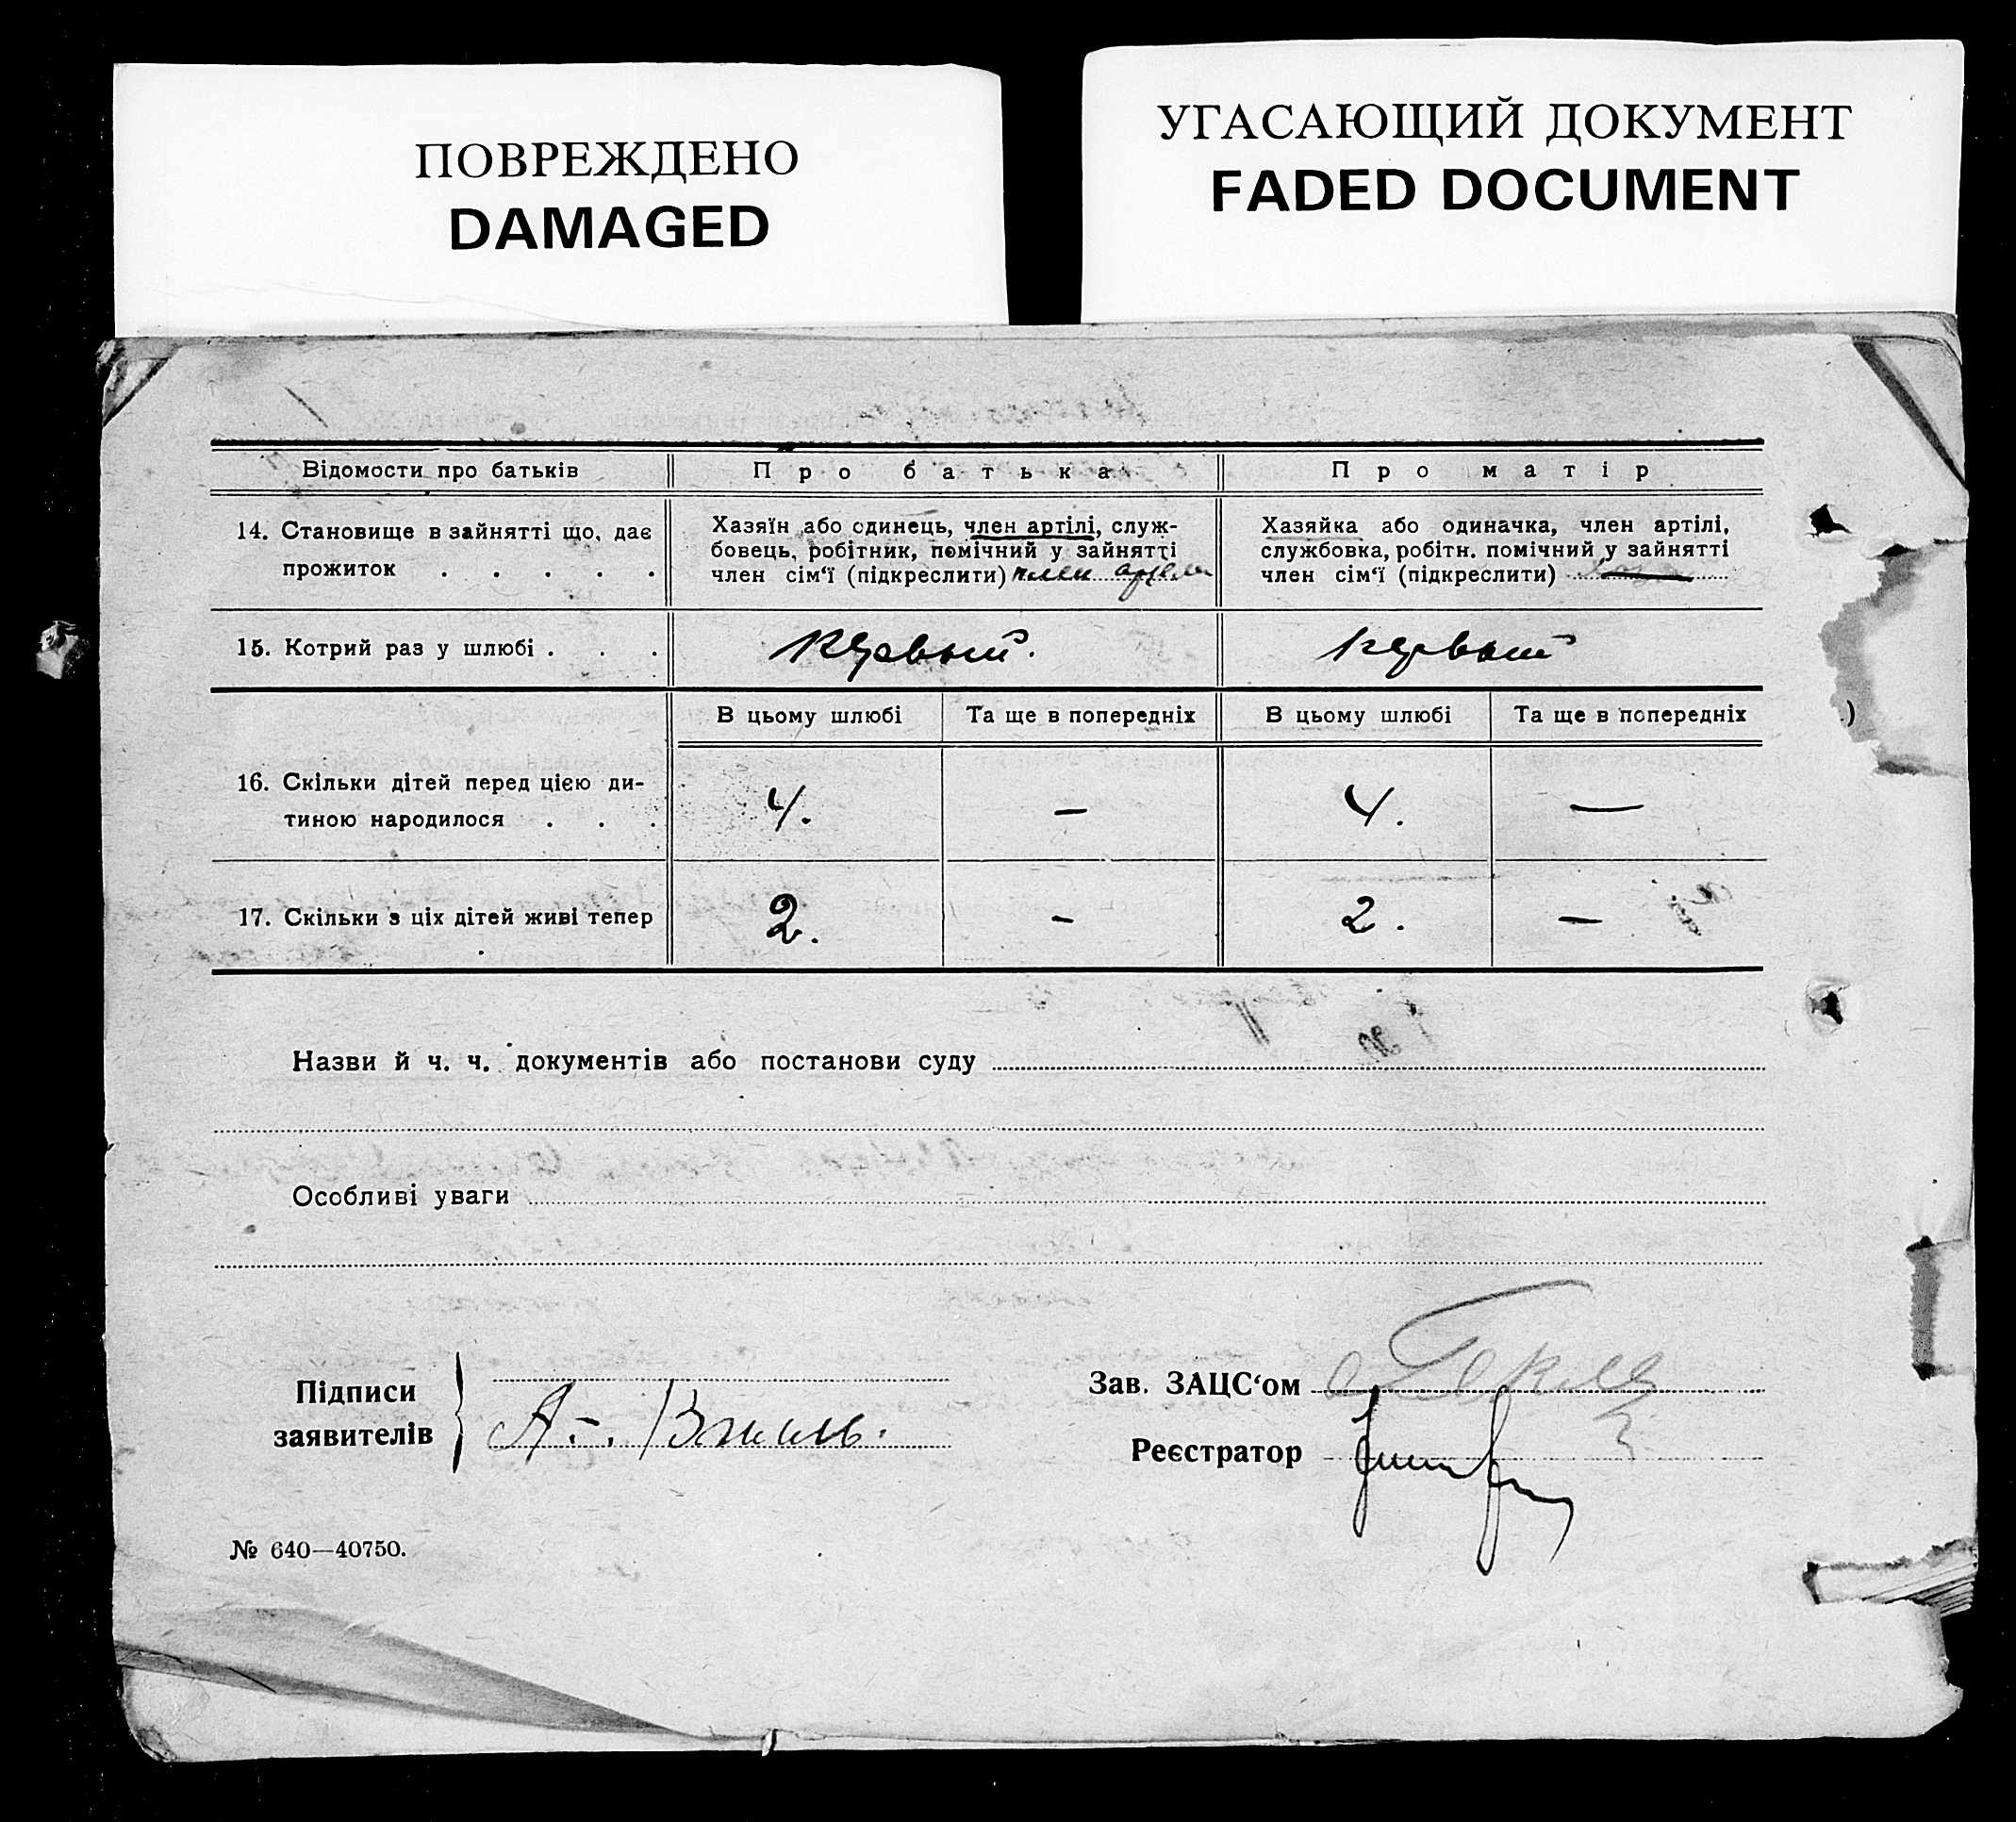 ПОВРЕЖДЕНО
DAMAGED
УГАСАЮЩИЙ ДОКУМЕНТ
FADED DOCUMENT
Відомости про батьків
Про батька
Про матір
14. Становище в зайнятті що, дає
прожиток . . . . .
Хазяїн або одинець, член артілі, служ-
бовець, робітник, помічний у зайнятті
член сім‘ї (підкреслити) член артели
Хазяйка або одиначка, член артілі,
службовка, робітн. помічний у зайнятті
член сім‘ї (підкреслити)
15. Котрий раз у шлюбі . . .
первый.
первый
В цьому шлюбі
Та ще в попередніх
В цьому шлюбі
Та ще в попередніх
16. Скільки дітей перед цією ди-
тиною народилося . . .
4.
—
4.
—
17. Скільки з ціх дітей живі тепер
2.
—
2.
—
Назви й ч. ч. документів або постанови суду
Особливі уваги
Підписи
заявителів
А.
Зав. ЗАЦС‘ом
Реєстратор
№ 640—40750.